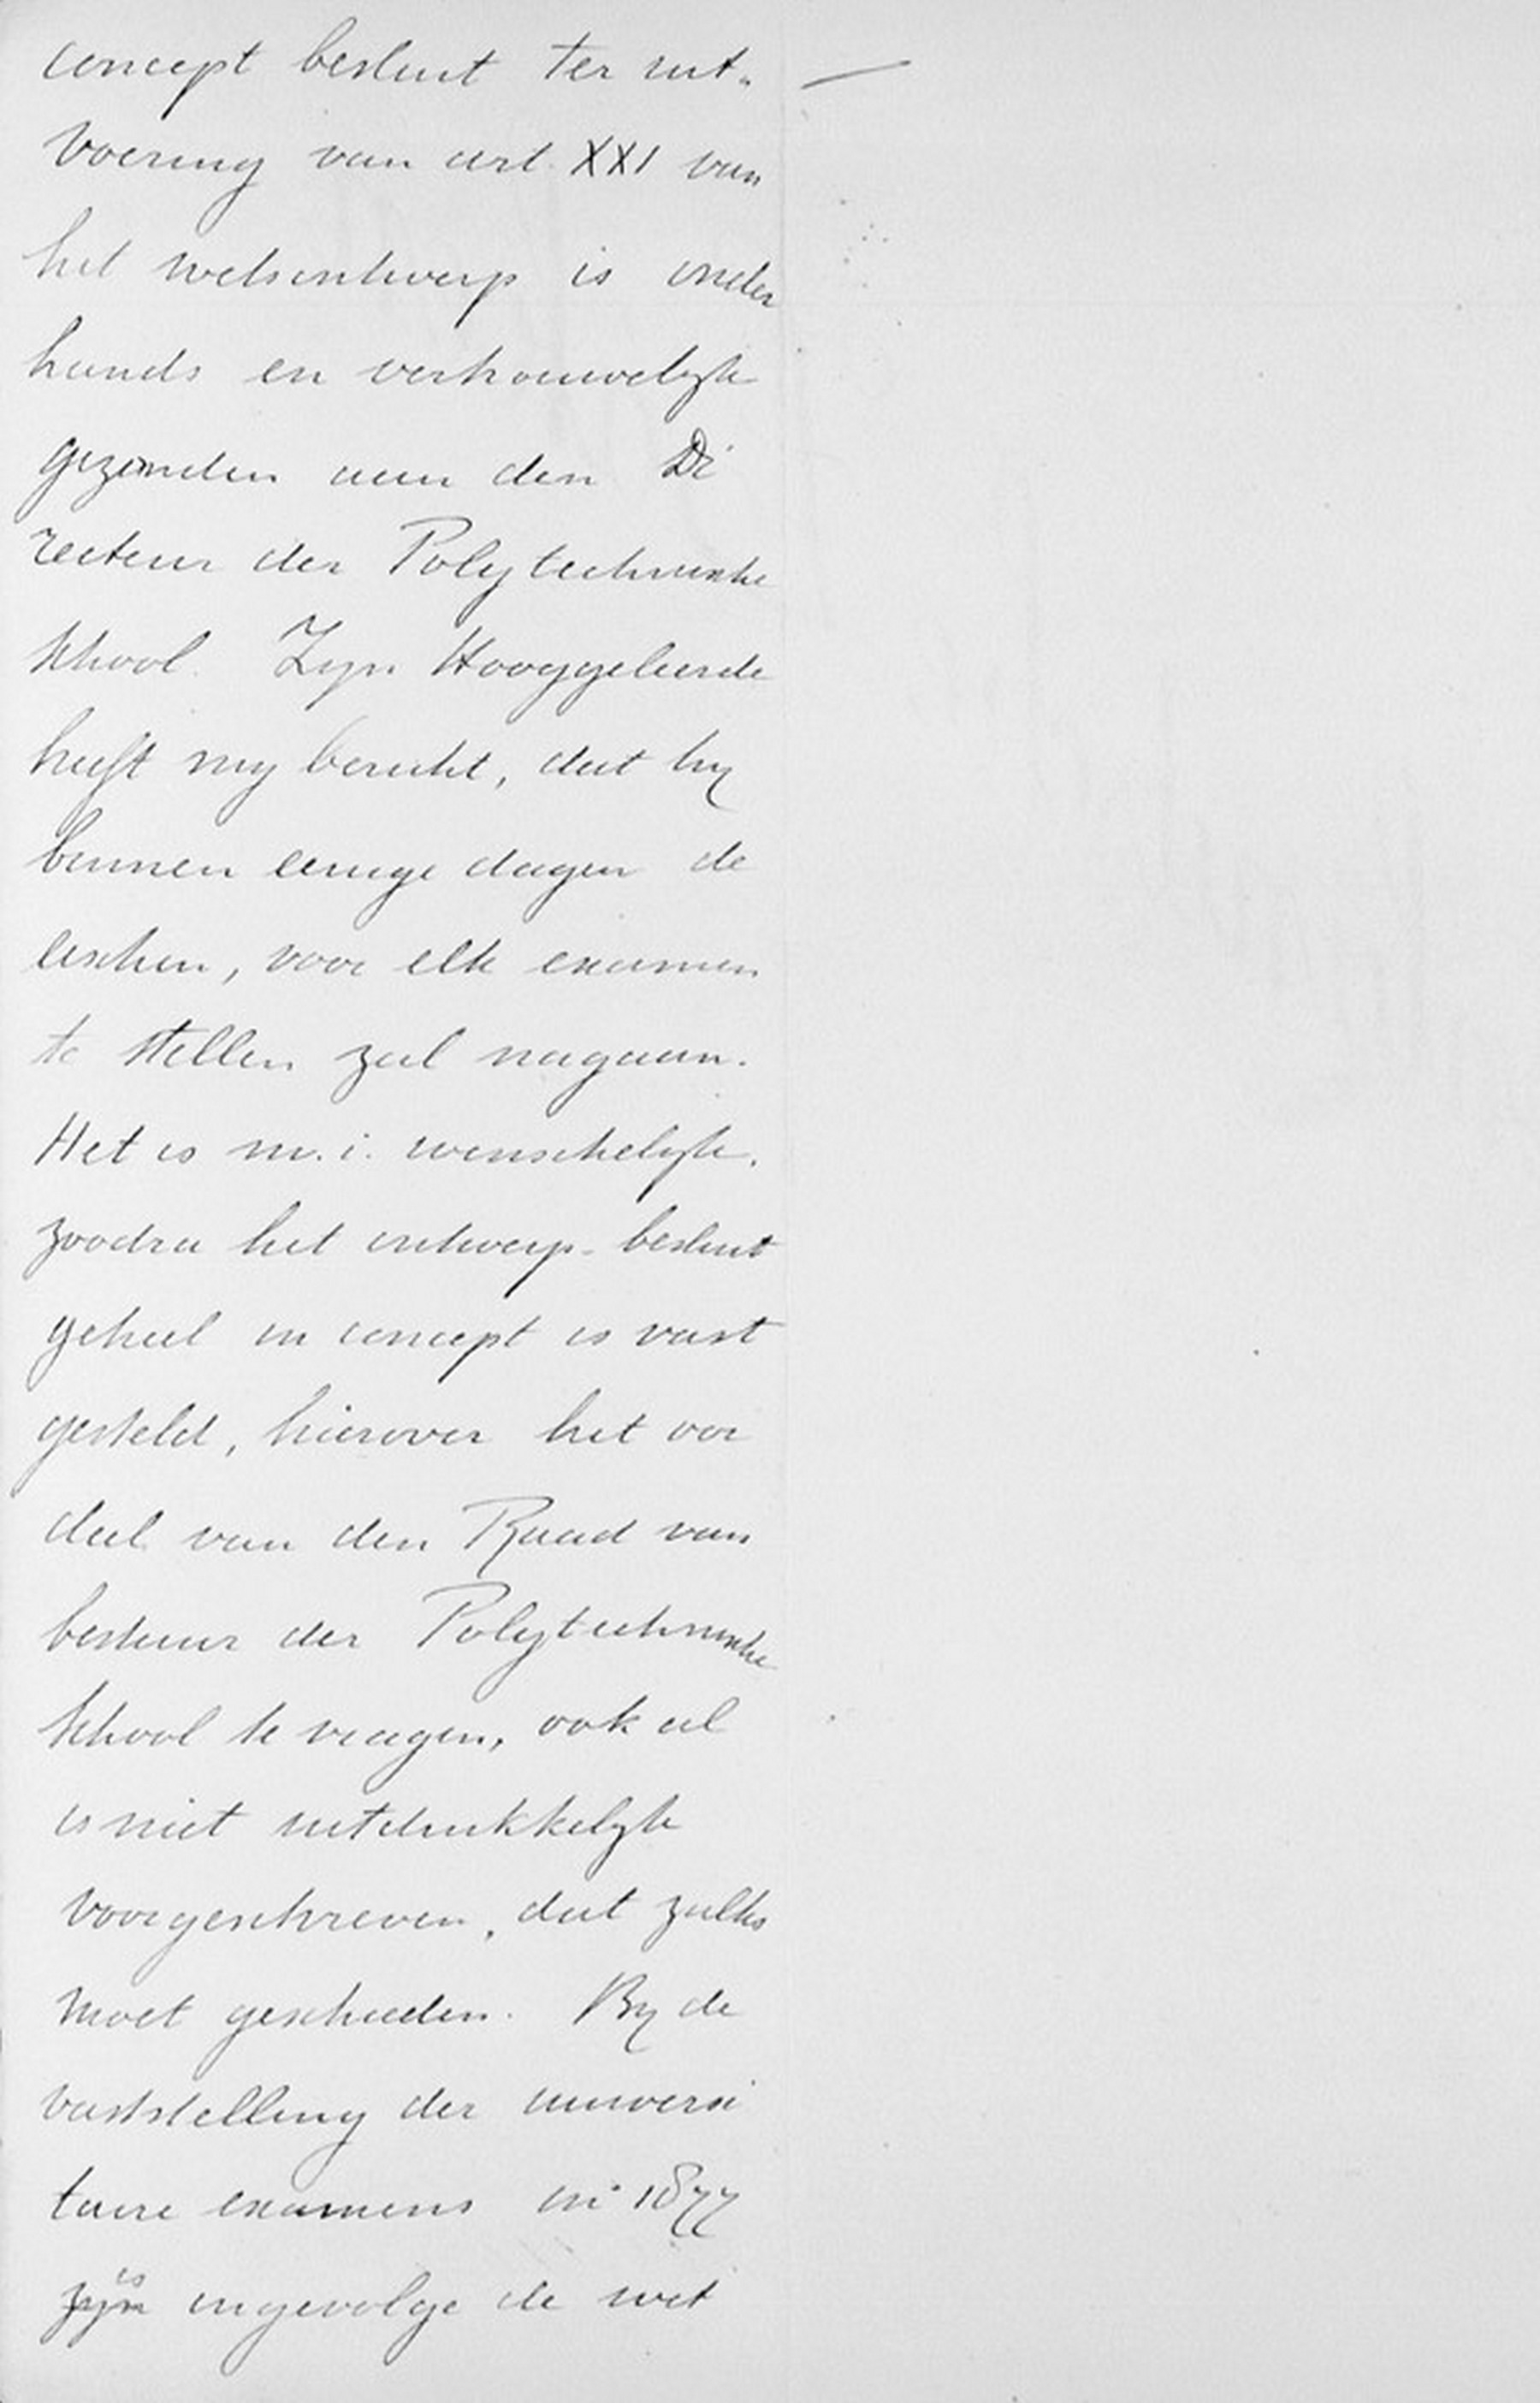 concept besluit ter uit-
voering van art. XXI van
het wetsontwerp is onder
hands en vertrouwelijk
gezonden aan den Di
recteur der Polytechnische
School. Zijn Hooggeleerde
heeft mij bericht, dat hij
binnen eenige dagen de
eischen, voor elk examen
te stellen zal nagaan.
Het is m.i. wenschelijk,
zoodra het ontwerp-besluit
geheel in concept is vast
gesteld, hierover het oor
deel van den Raad van
bestuur der Polytechnische
School te vragen, ook al
is niet uitdrukkelijk
voorgeschreven, dat zulks
moet geschieden. Bij de
vaststelling der universi
taire examens in 1877
zijn is ingevolge de wet